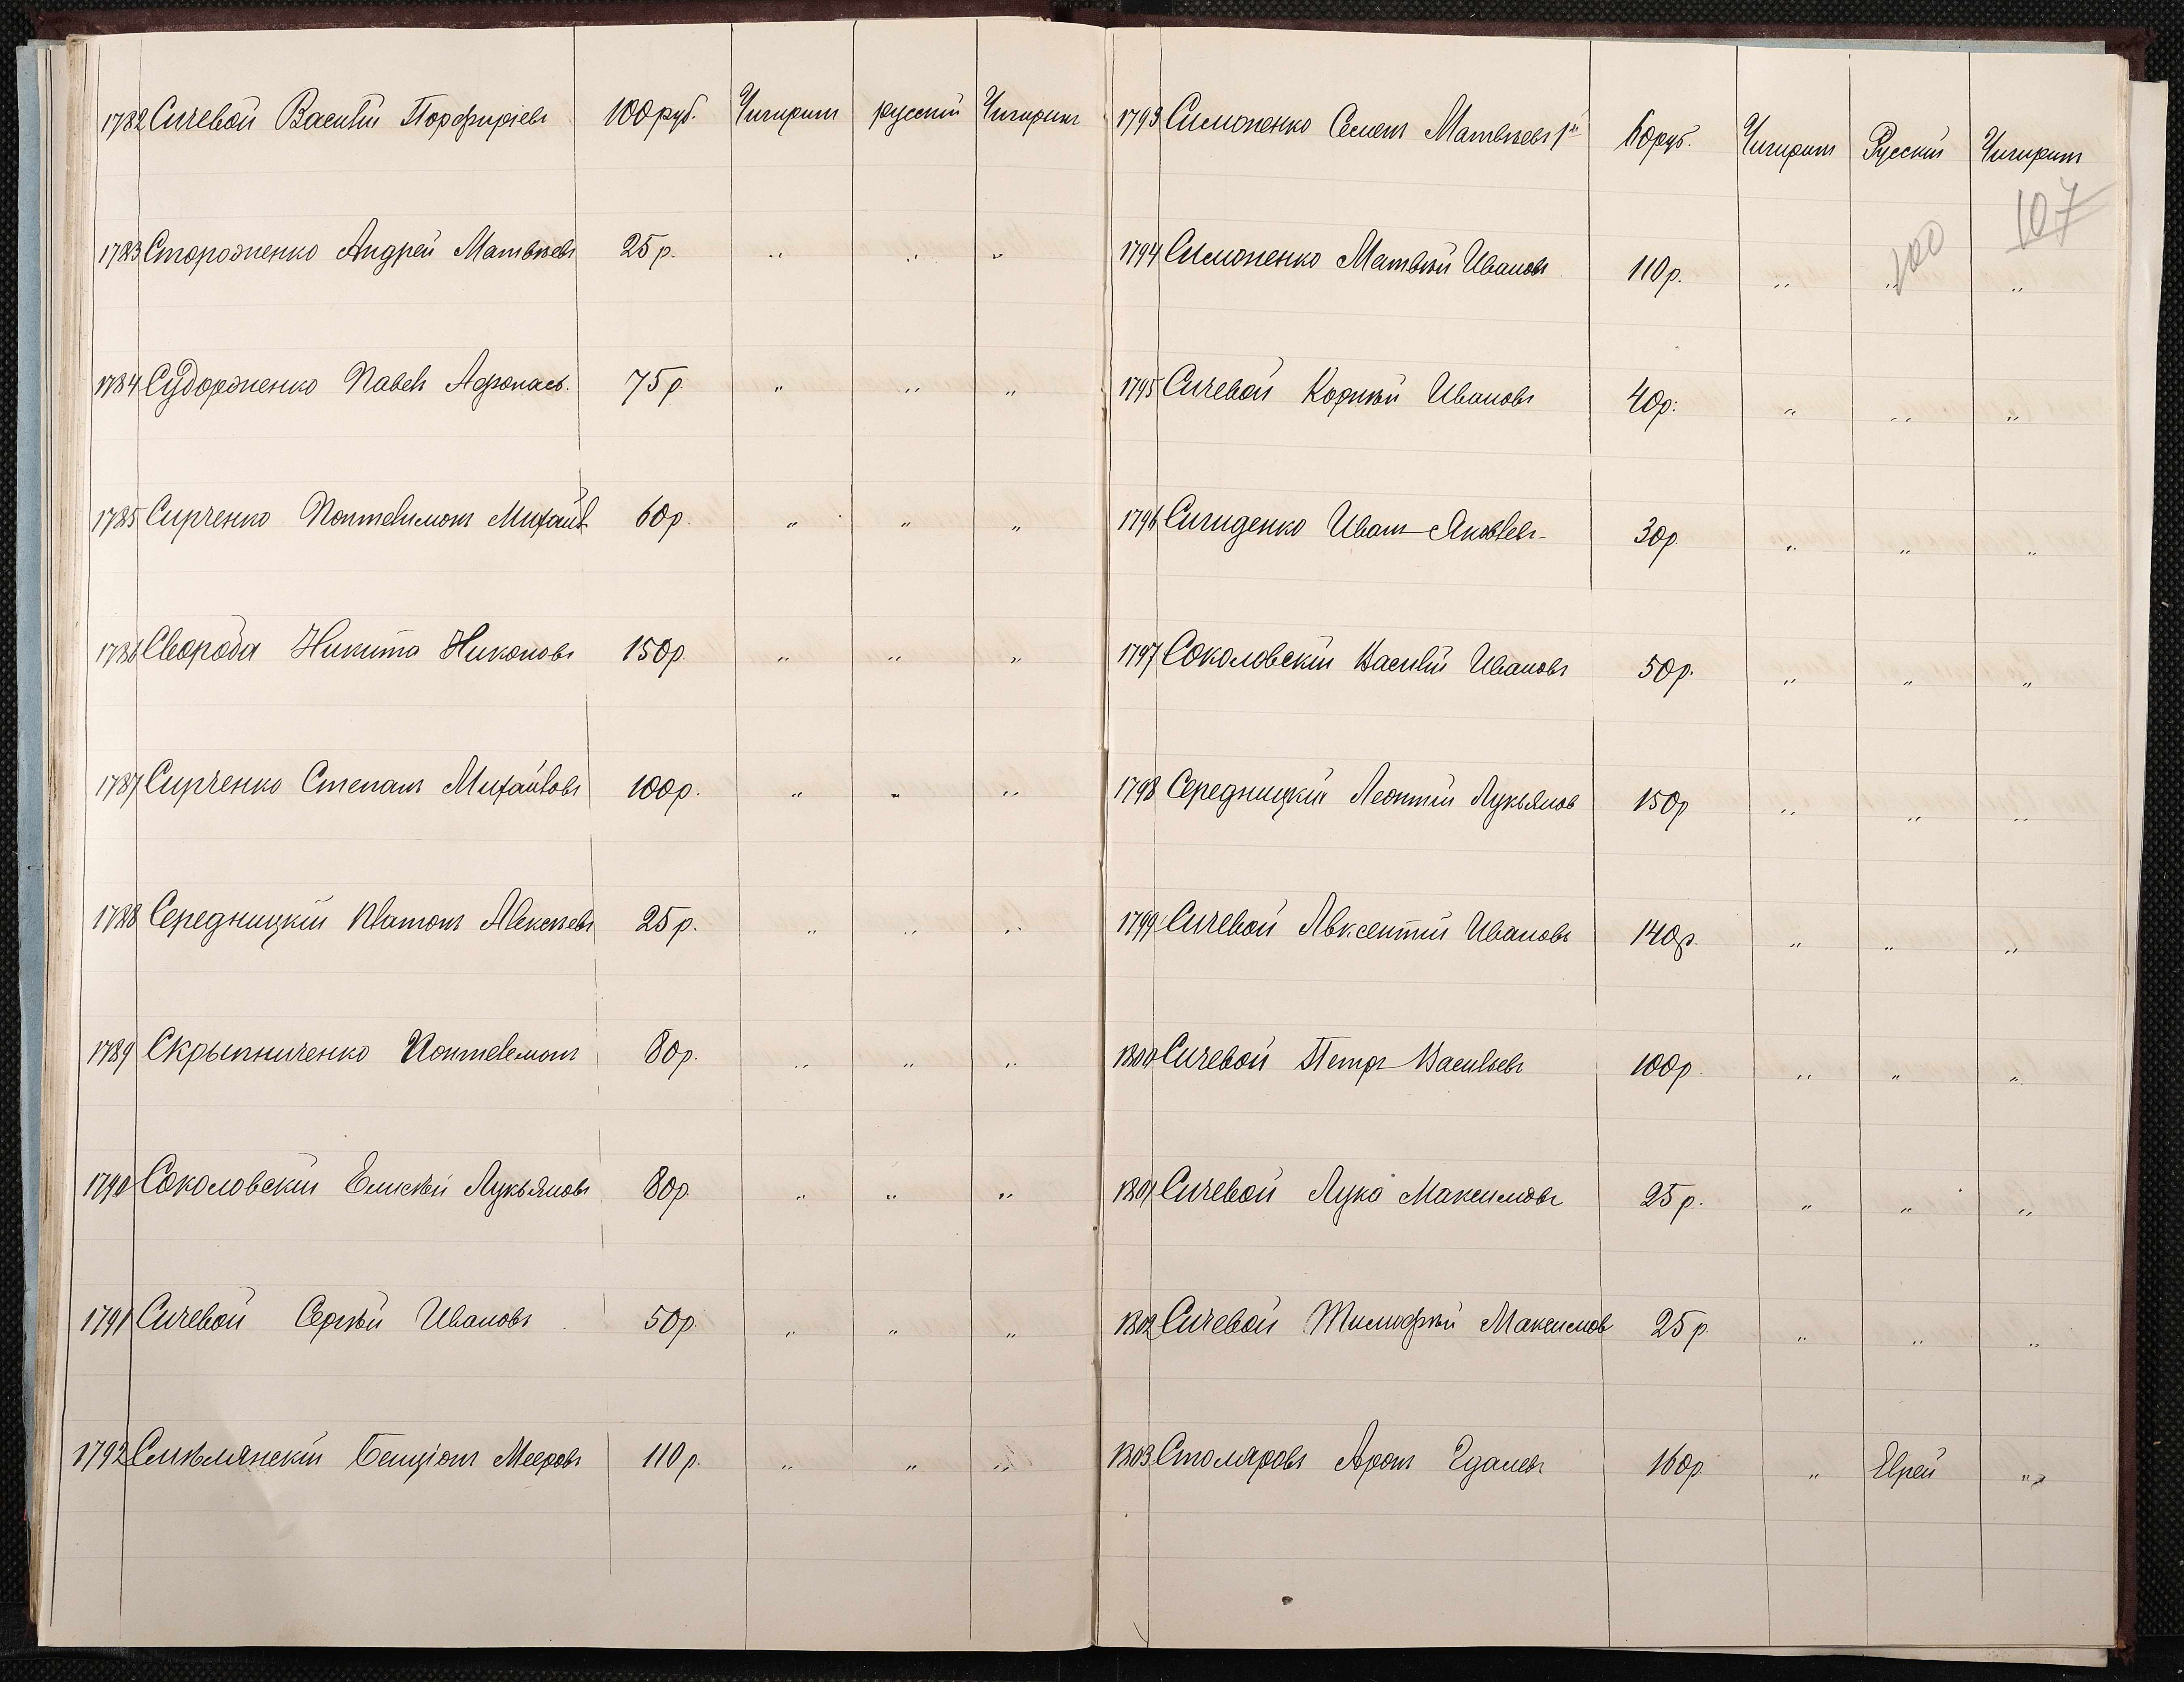 1782 Сичевой Василій Порфиріевъ 100 руб. Чигиринъ русскій Чигиринъ
1783 Стороженко Андрей Матвѣевъ 25 р. „ „ „
1784 Судорженко Павелъ Афонасъ. 75 р. „ „ „
1785 Сирченко Понтелимонъ Михайл. 60 р. „ „ „
1786 Сворода Никита Никоновъ 150 р. „ „ „
1787 Сирченко Степанъ Михайловъ 100 р. „ „ „
1788 Середницкій Платонъ Алексѣевъ 25 р. „ „ „
1789 Скрыпниченко Понтелемонъ 80 р. „ „ „
1790 Соколовскій Елисѣй Лукьяновъ 80 р. „ „ „
1791 Сичевой Сергѣй Ивановъ 50 р. „ „ „
1792 Смѣлянскій Бенціонъ Мееровъ 110 р. „ „ „
1793 Симоненко Семенъ Матвѣевъ 1й 60 руб. Чигиринъ Русскій Чигиринъ
107
100
1794 Симоненко Матвѣй Ивановъ 110 р. „ „ „
1795 Сичевой Корнѣй Ивановъ 40 р. „ „ „
1796 Сигиденко Иванъ Яковлевъ 30 р. „ „ „
1797 Соколовскій Василій Ивановъ 50 р. „ „ „
1798 Середницкій Леонтій Лукьянов 150 р „ „ „
1799 Сичевой Авксентій Ивановъ 140 р. „ „ „
1800 Сичевой Петръ Васильевъ 100 р. „ „ „
1801 Сичевой Лука Максимовъ 25 р. „ „ „
1802 Сичевой Тимофѣй Максимов 25 р. „ „ „
1803 Столяровъ Аронъ Едалев 160 р „ Еврей „